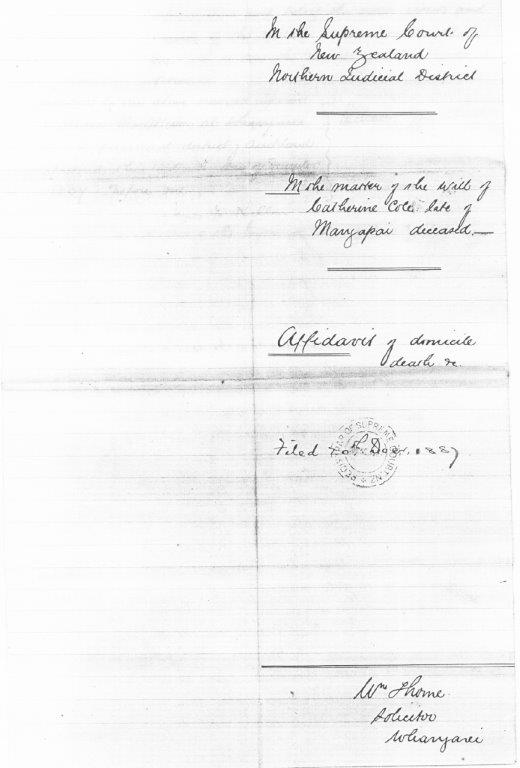 In the Supreme Court of
New Zealand
Northern Judicial District
In the matter of the will of
Catherine Cole late of
Mangapai deceased.—
Affidavit of domicile
death &c.
Filed Decr. 1887
REGISTRAR OF SUPREME COURT NZ
Wm Thorne
Solicitor
Whangarei